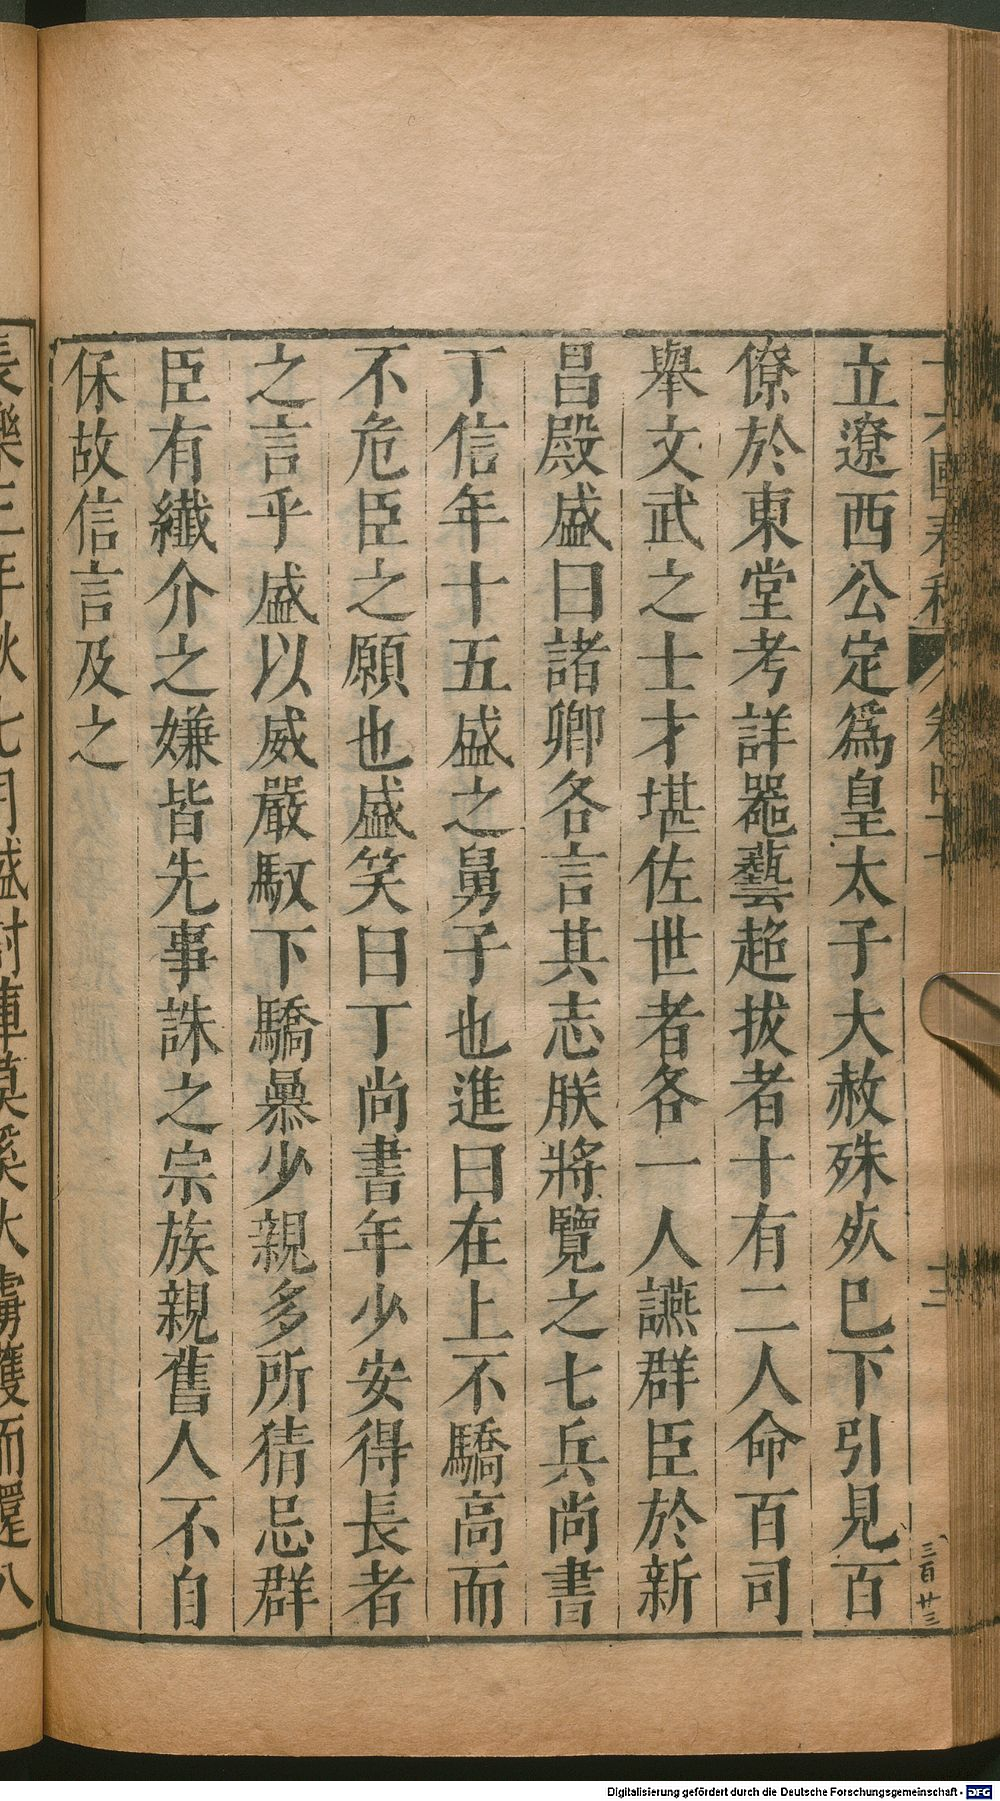 立遼西公定爲皇太子大赦殊死巳下引見百
僚於東堂考詳噐藝超拔者十有二人命百司
舉文武之士才堪佐世者各一人讌群臣於新
昌殿盛曰諸卿各言其志朕將覽之七兵尚書
丁信年十五盛之舅子也進曰在上不驕高而
不危臣之願也盛笑曰丁尚書年少安得長者
之言乎盛以威嚴馭下驕暴少親多所猜忌群
臣有纖介之嫌皆先事誅之宗族親舊人不自
保故信言及之
長樂三年秋七月盛討庫莫奚大虜獲而還八
三百廿三
Digitalisierung gefördert durch die Deutsche Forschungsgemeinschaft - DFG